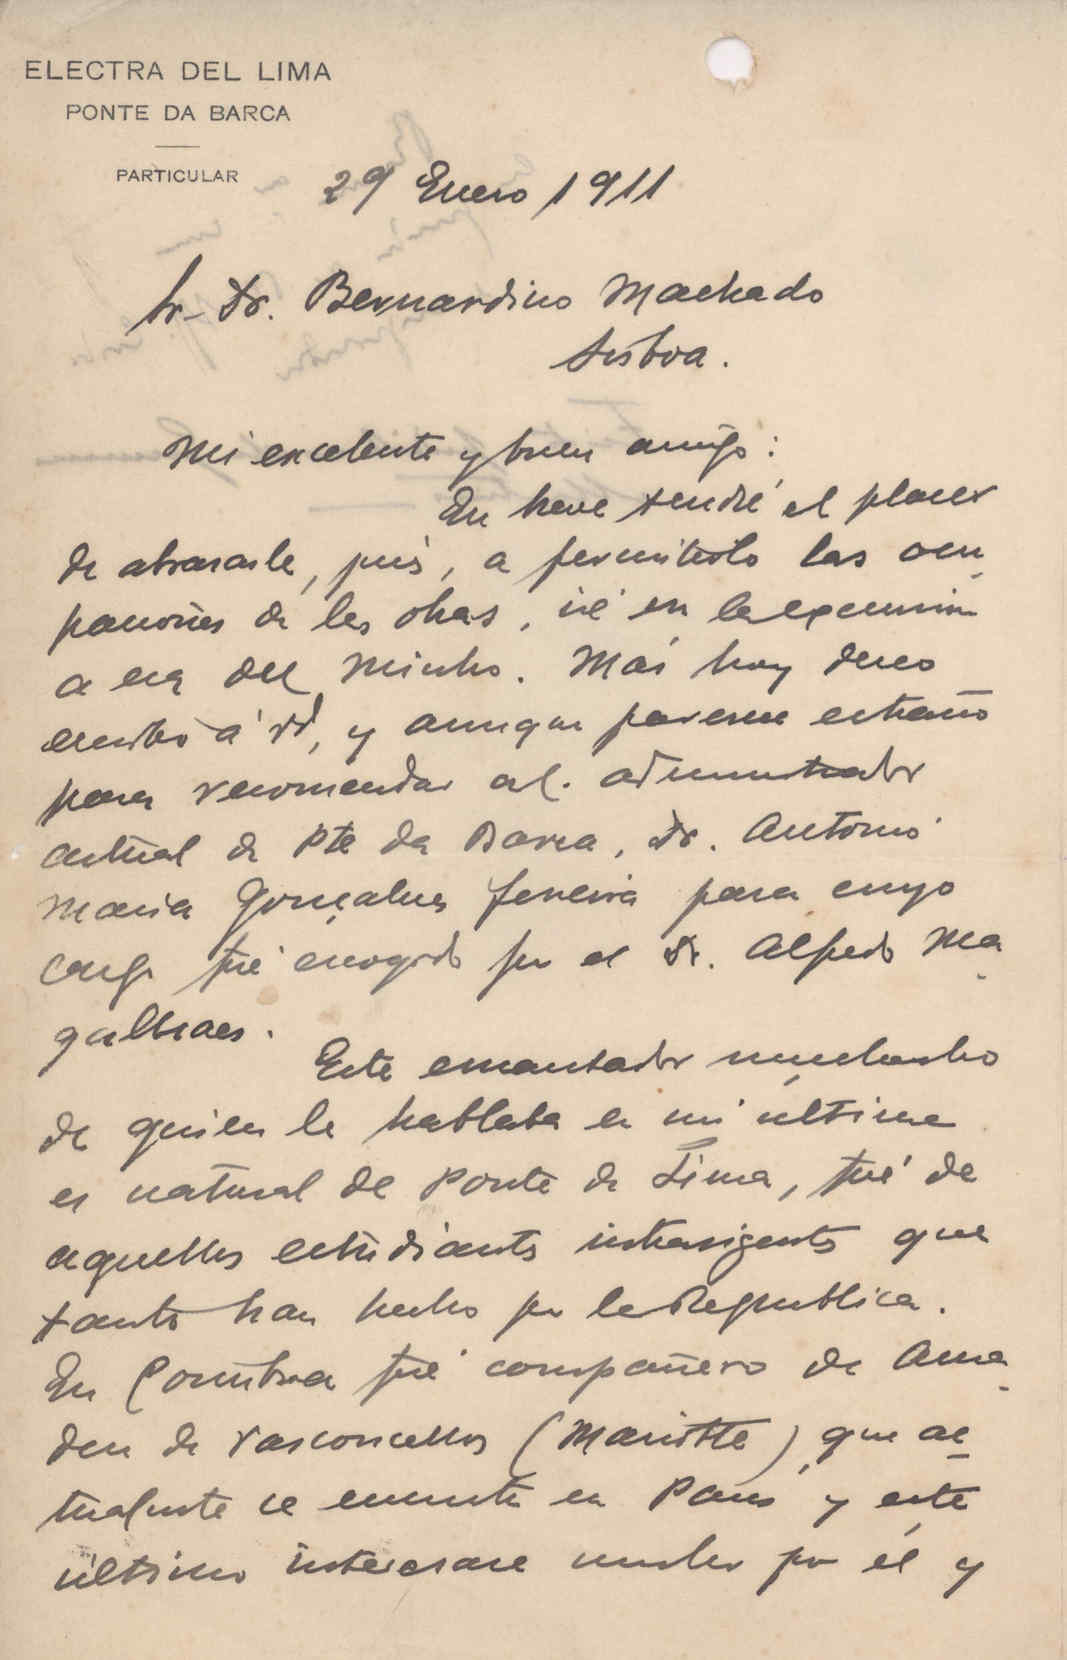 ELECTRA DEL LIMA
PONTE DA BARCA
PARTICULAR
29 Enero 1911
Sr. Dr. Bernardino Machado
Lisboa.
Mi excelente y buen amigo:
En breve tendré el placer
de abrazarle, pués, a permitirlo las ocu
paciones de las obras, iré en la excursión
a esa del Minho. Más hoy deseo
escribir á Vd, y aunque parezca extraño
para recomendar al administrador
actual de Pte da Barca, Dr. Antonio
Maria Gonçalves Pereira para cuyo
cargo fué escogido por el Dr. Alfredo Ma
galhaes.
Este encantador muchacho
de quien le hablaba en mi última
es natural de Ponte de Lima, fué de
aquellos estudiantes intrasigentes que
tanto han hecho por la Republica.
En Coimbra fué compañero de Ama
deu de Vasconcellos (Mariotte) que ac
tualmente se encuentra en Paris y este
último interesase mucho por él y